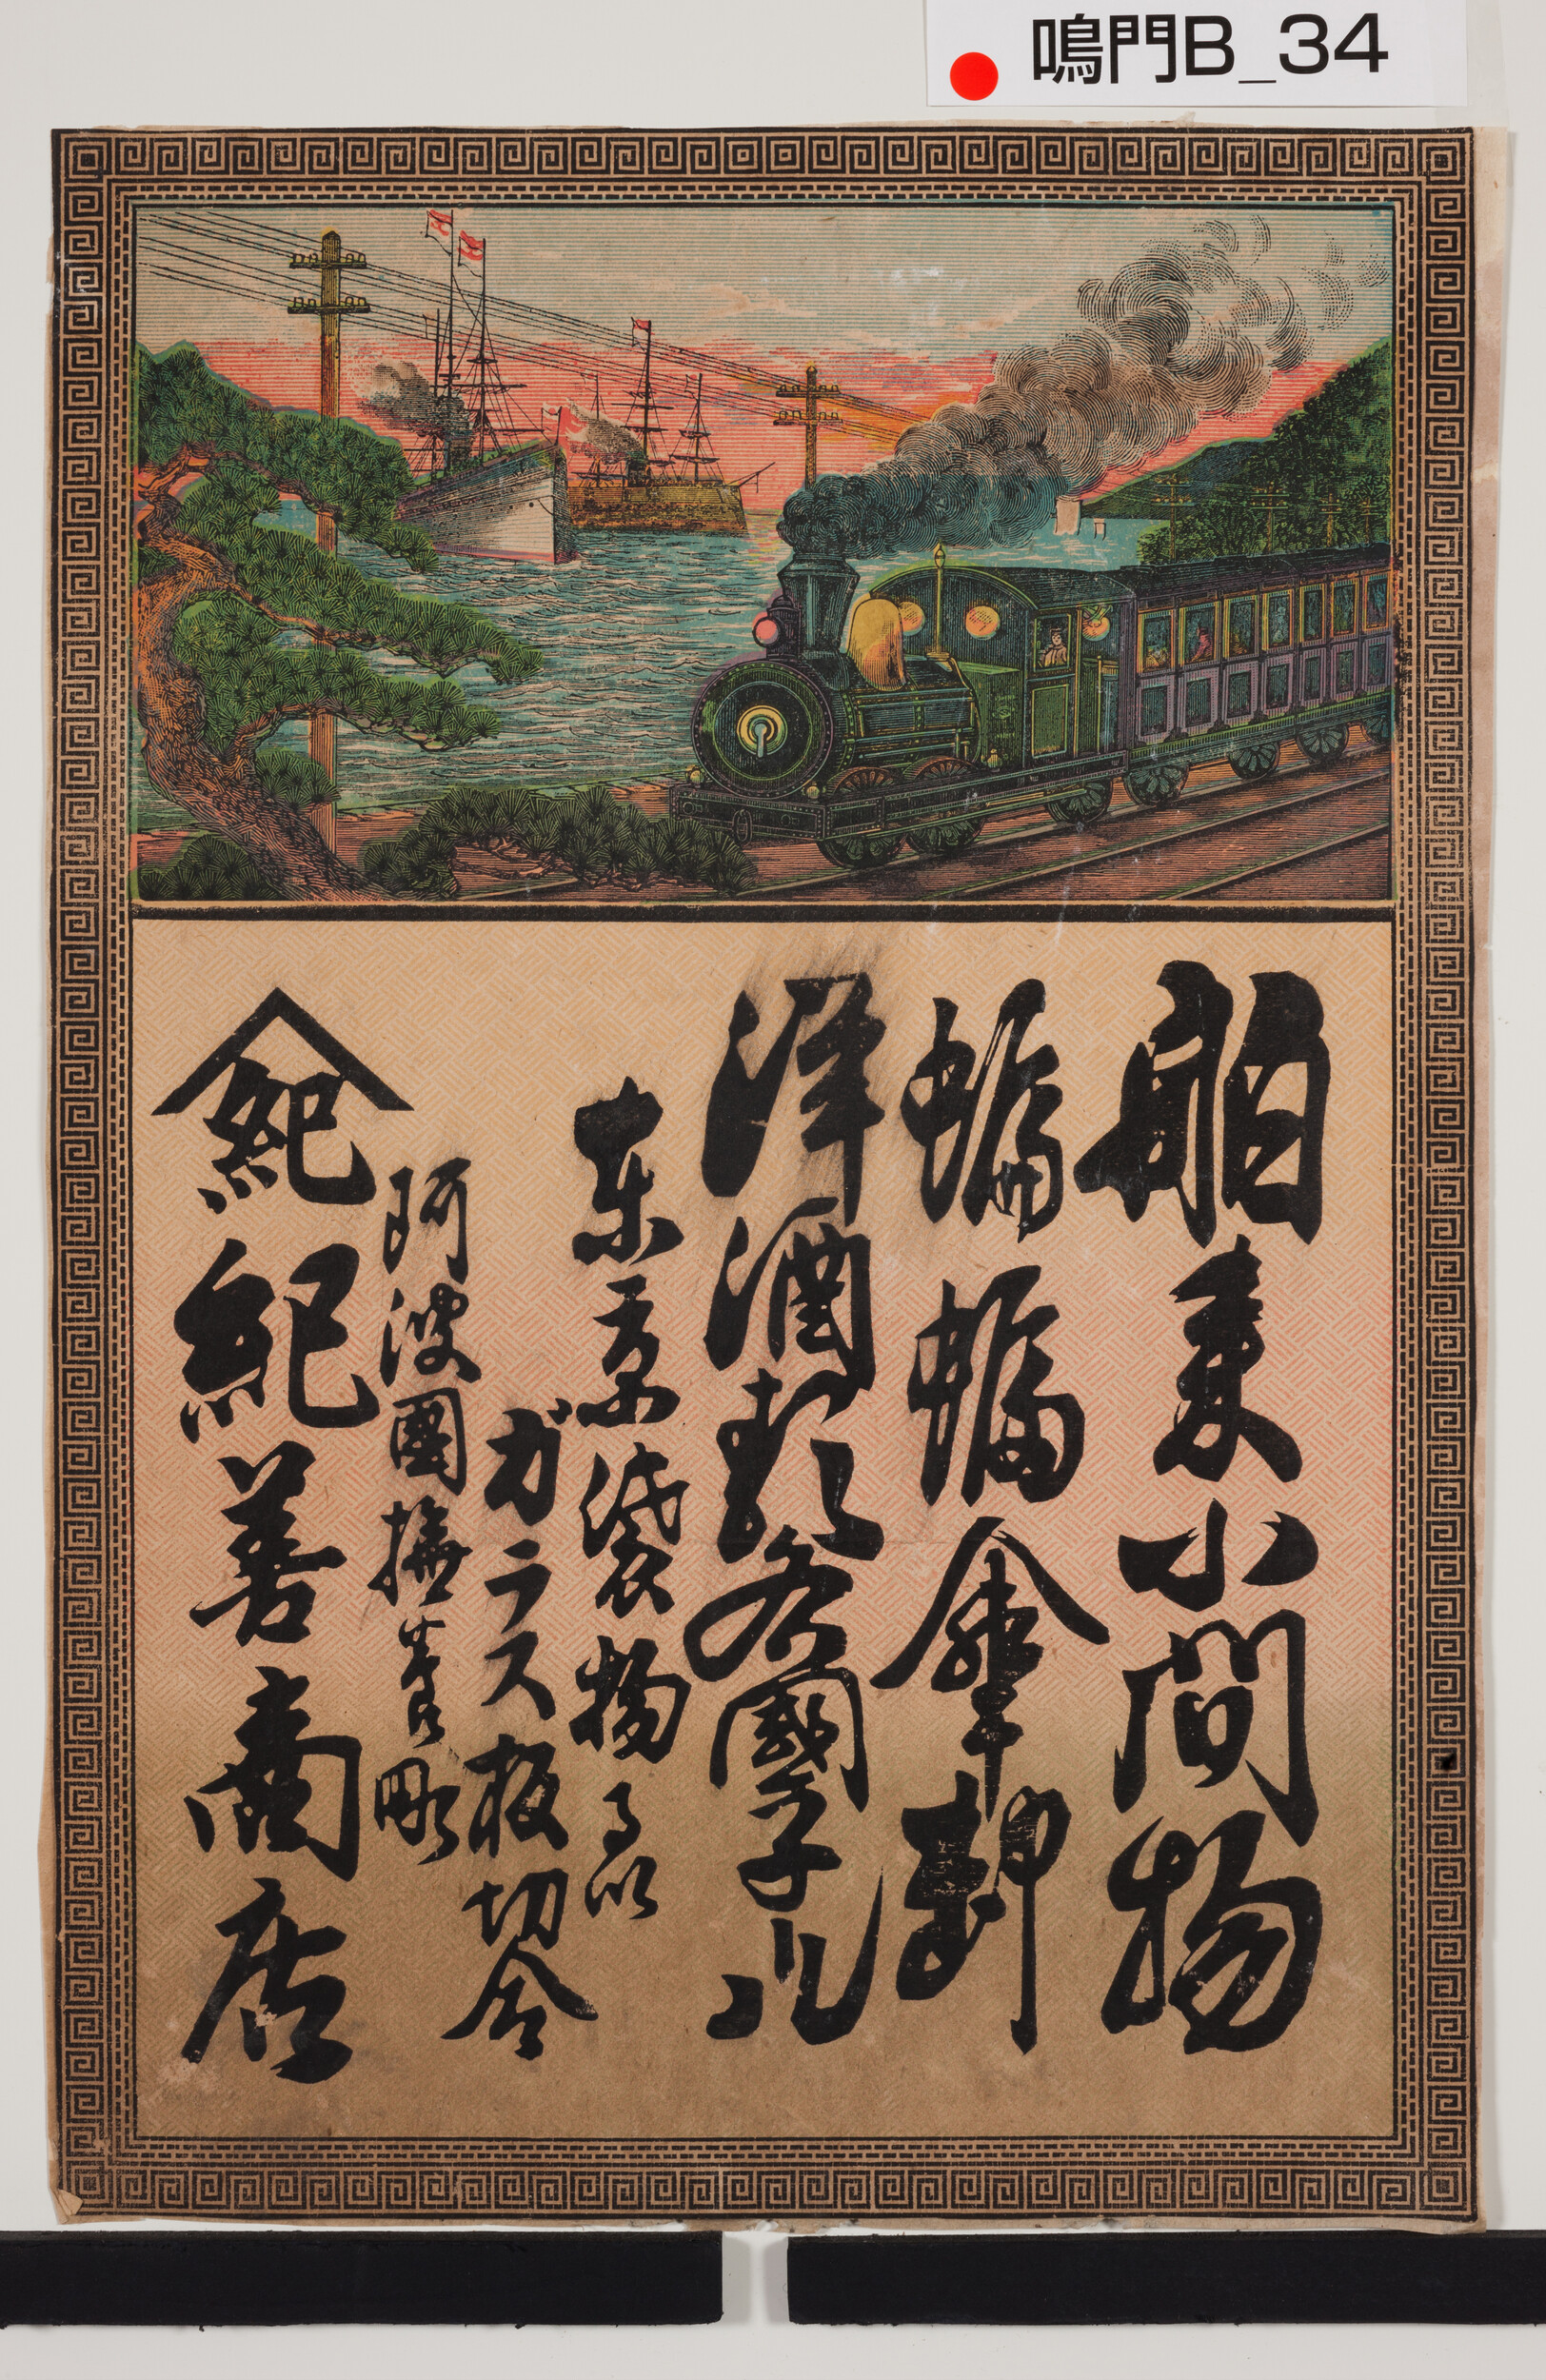 鳴門B_34
舶来小間物
蝙蝠傘卸
洋酒類各國
東京袋物るい
ガラス板切
阿波國撫養
紀
紀善商店